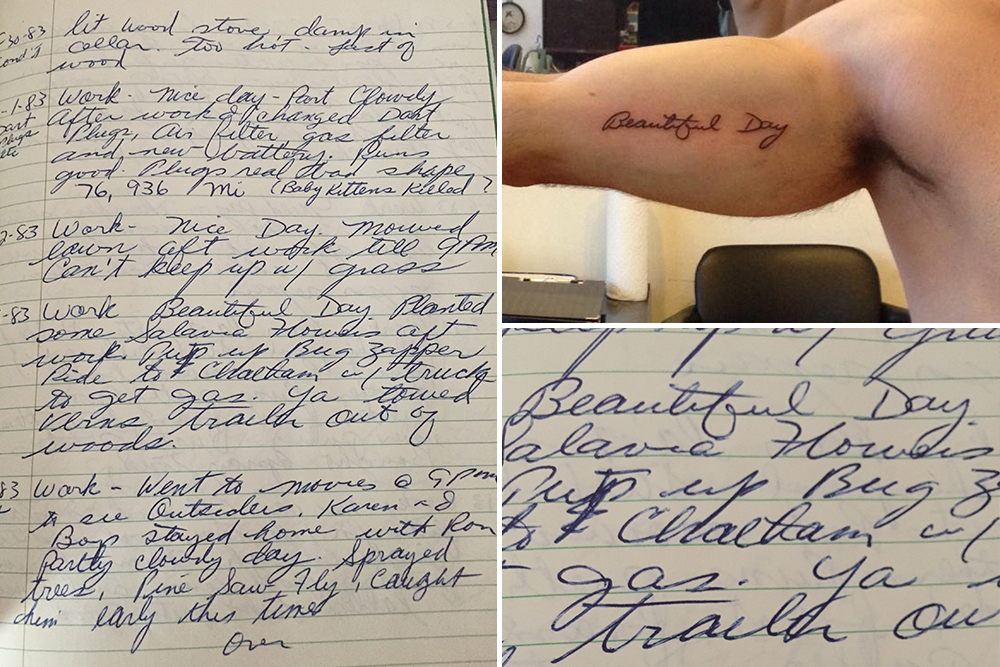 30-83 lit wood stove, damp in
cellar. Too hot. Last of
wood
-1-83 Work - Nice day - Part Clowdy
After work I changed Dart
Plugs, Air filter, gas filter
and new battery. Runs
good. Plugs real bad shape
76,936 Mi (Baby Kittens Killed ?
2-83 Work - Nice Day. Mowed
lawn aft work till 9PM
Can't keep up w/ grass
-83 Work Beautiful Day Planted
some Salavia Flowers aft
work. Putt up Bug Zapper
Ride to Chatham w/ truck
to get gas. Ya towed
Verns trailer out of
woods.
83 Work - Went to movies @ 9pm
to see Outsiders. Karen & 
Boys stayed home with Ron
Partly cloudy day. Sprayed
trees, Pine Saw Fly, Caught
them early this time
over
Beautiful Day
Beautiful Day
Salavia Flowers
Putt up Bug Z
to Chatham w/
gas. Ya
trailer ou